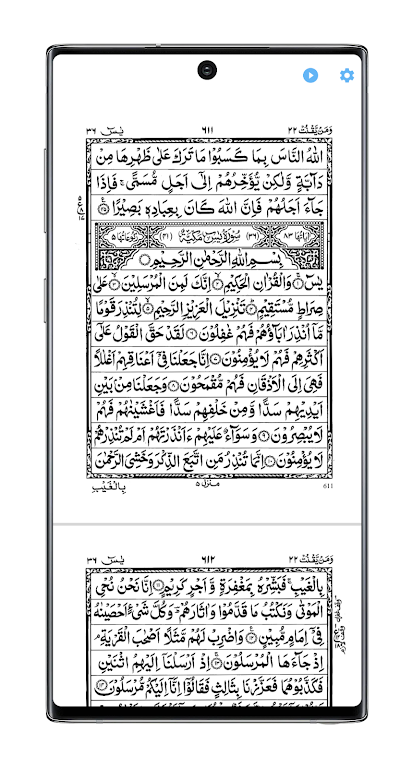 وَمَنْ يَّقْنُتْ ٢٢ ٦١١ يٰسٓ ٣٦
اللّٰهُ النَّاسَ بِمَا كَسَبُوْا مَا تَرَكَ عَلٰى ظَهْرِهَا مِنْ
دَآبَّةٍ وَّلٰكِنْ يُّؤَخِّرُهُمْ اِلٰٓى اَجَلٍ مُّسَمًّى ۚ فَاِذَا
جَآءَ اَجَلُهُمْ فَاِنَّ اللّٰهَ كَانَ بِعِبَادِهٖ بَصِيْرًا ۝٤٥
اٰيَاتُهَا ٨٣ (٣٦) سُوْرَةُ يٰسٓ مَكِّيَّةٌ (٤١) رُكُوْعَاتُهَا ٥
بِسْمِ اللّٰهِ الرَّحْمٰنِ الرَّحِيْمِ
يٰسٓ ۝١ وَالْقُرْاٰنِ الْحَكِيْمِ ۝٢ اِنَّكَ لَمِنَ الْمُرْسَلِيْنَ ۝٣ عَلٰى
صِرَاطٍ مُّسْتَقِيْمٍ ۝٤ تَنْزِيْلَ الْعَزِيْزِ الرَّحِيْمِ ۝٥ لِتُنْذِرَ قَوْمًا
مَّآ اُنْذِرَ اٰبَآؤُهُمْ فَهُمْ غٰفِلُوْنَ ۝٦ لَقَدْ حَقَّ الْقَوْلُ عَلٰٓى
اَكْثَرِهِمْ فَهُمْ لَا يُؤْمِنُوْنَ ۝٧ اِنَّا جَعَلْنَا فِيْٓ اَعْنَاقِهِمْ اَغْلٰلًا
فَهِيَ اِلَى الْاَذْقَانِ فَهُمْ مُّقْمَحُوْنَ ۝٨ وَجَعَلْنَا مِنْۢ بَيْنِ
اَيْدِيْهِمْ سَدًّا وَّمِنْ خَلْفِهِمْ سَدًّا فَاَغْشَيْنٰهُمْ فَهُمْ
لَا يُبْصِرُوْنَ ۝٩ وَسَوَآءٌ عَلَيْهِمْ ءَاَنْذَرْتَهُمْ اَمْ لَمْ تُنْذِرْهُمْ
لَا يُؤْمِنُوْنَ ۝١٠ اِنَّمَا تُنْذِرُ مَنِ اتَّبَعَ الذِّكْرَ وَخَشِيَ الرَّحْمٰنَ
بِالْغَيْبِ
منزل ٥
611
وَمَنْ يَّقْنُتْ ٢٢ ٦١٢ يٰسٓ ٣٦
بِالْغَيْبِ ۚ فَبَشِّرْهُ بِمَغْفِرَةٍ وَّاَجْرٍ كَرِيْمٍ ۝١١ اِنَّا نَحْنُ نُحْيِ
الْمَوْتٰى وَنَكْتُبُ مَا قَدَّمُوْا وَاٰثَارَهُمْ ؕ وَكُلَّ شَيْءٍ اَحْصَيْنٰهُ
فِيْٓ اِمَامٍ مُّبِيْنٍ ۝١٢ وَاضْرِبْ لَهُمْ مَّثَلًا اَصْحٰبَ الْقَرْيَةِ ۘ
اِذْ جَآءَهَا الْمُرْسَلُوْنَ ۝١٣ اِذْ اَرْسَلْنَآ اِلَيْهِمُ اثْنَيْنِ
فَكَذَّبُوْهُمَا فَعَزَّزْنَا بِثَالِثٍ فَقَالُوْٓا اِنَّآ اِلَيْكُمْ مُّرْسَلُوْنَ ۝١٤